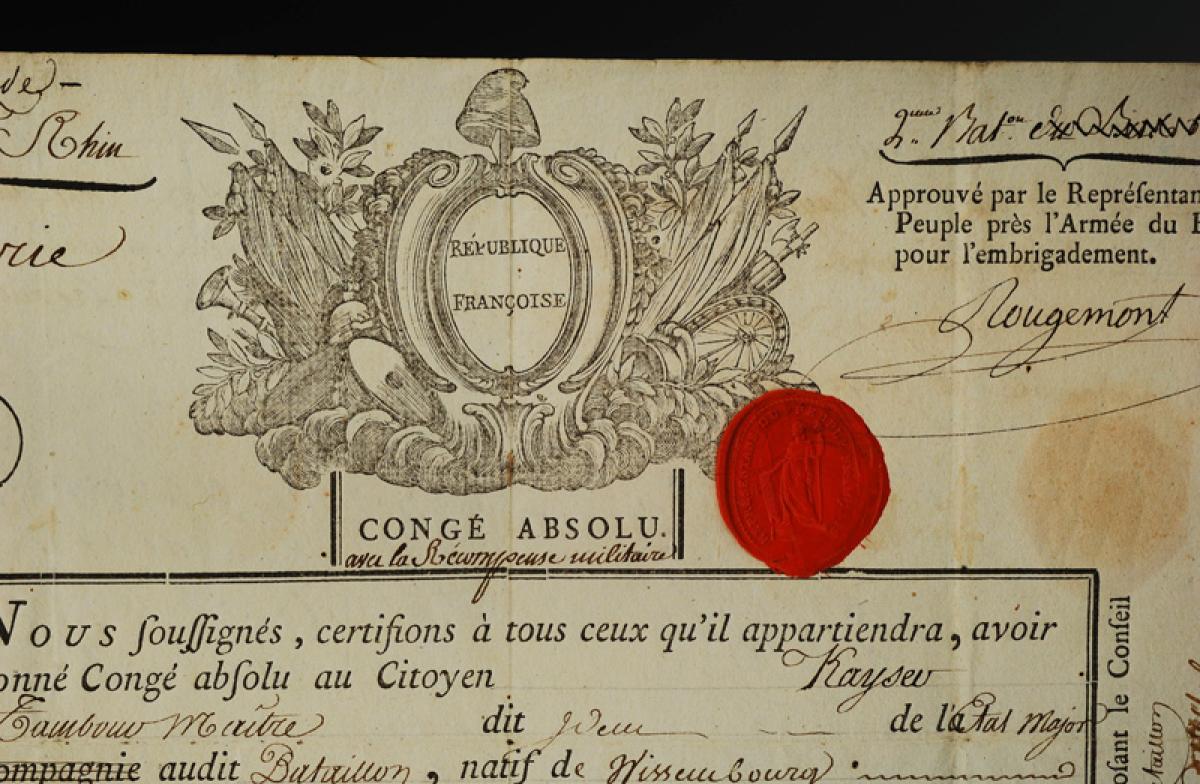 de
Rhin
rie
2.eme Bat.on
Approuvé par le Repréſentan
Peuple près l'Armée du
pour l'embrigadement.
Rougemont
RÉPUBLIQUE
FRANÇOISE
CONGÉ ABSOLU.
avec la Récompense militaire
Nous ſouſſignés, certifions à tous ceux qu'il appartiendra, avoir
onné Congé abſolu au Citoyen Kayser
Tambour Maitre dit idem de l'Etat Major
ompagnie audit Bataillon, natif de Wissembourg
ſant le Conſeil
taillon